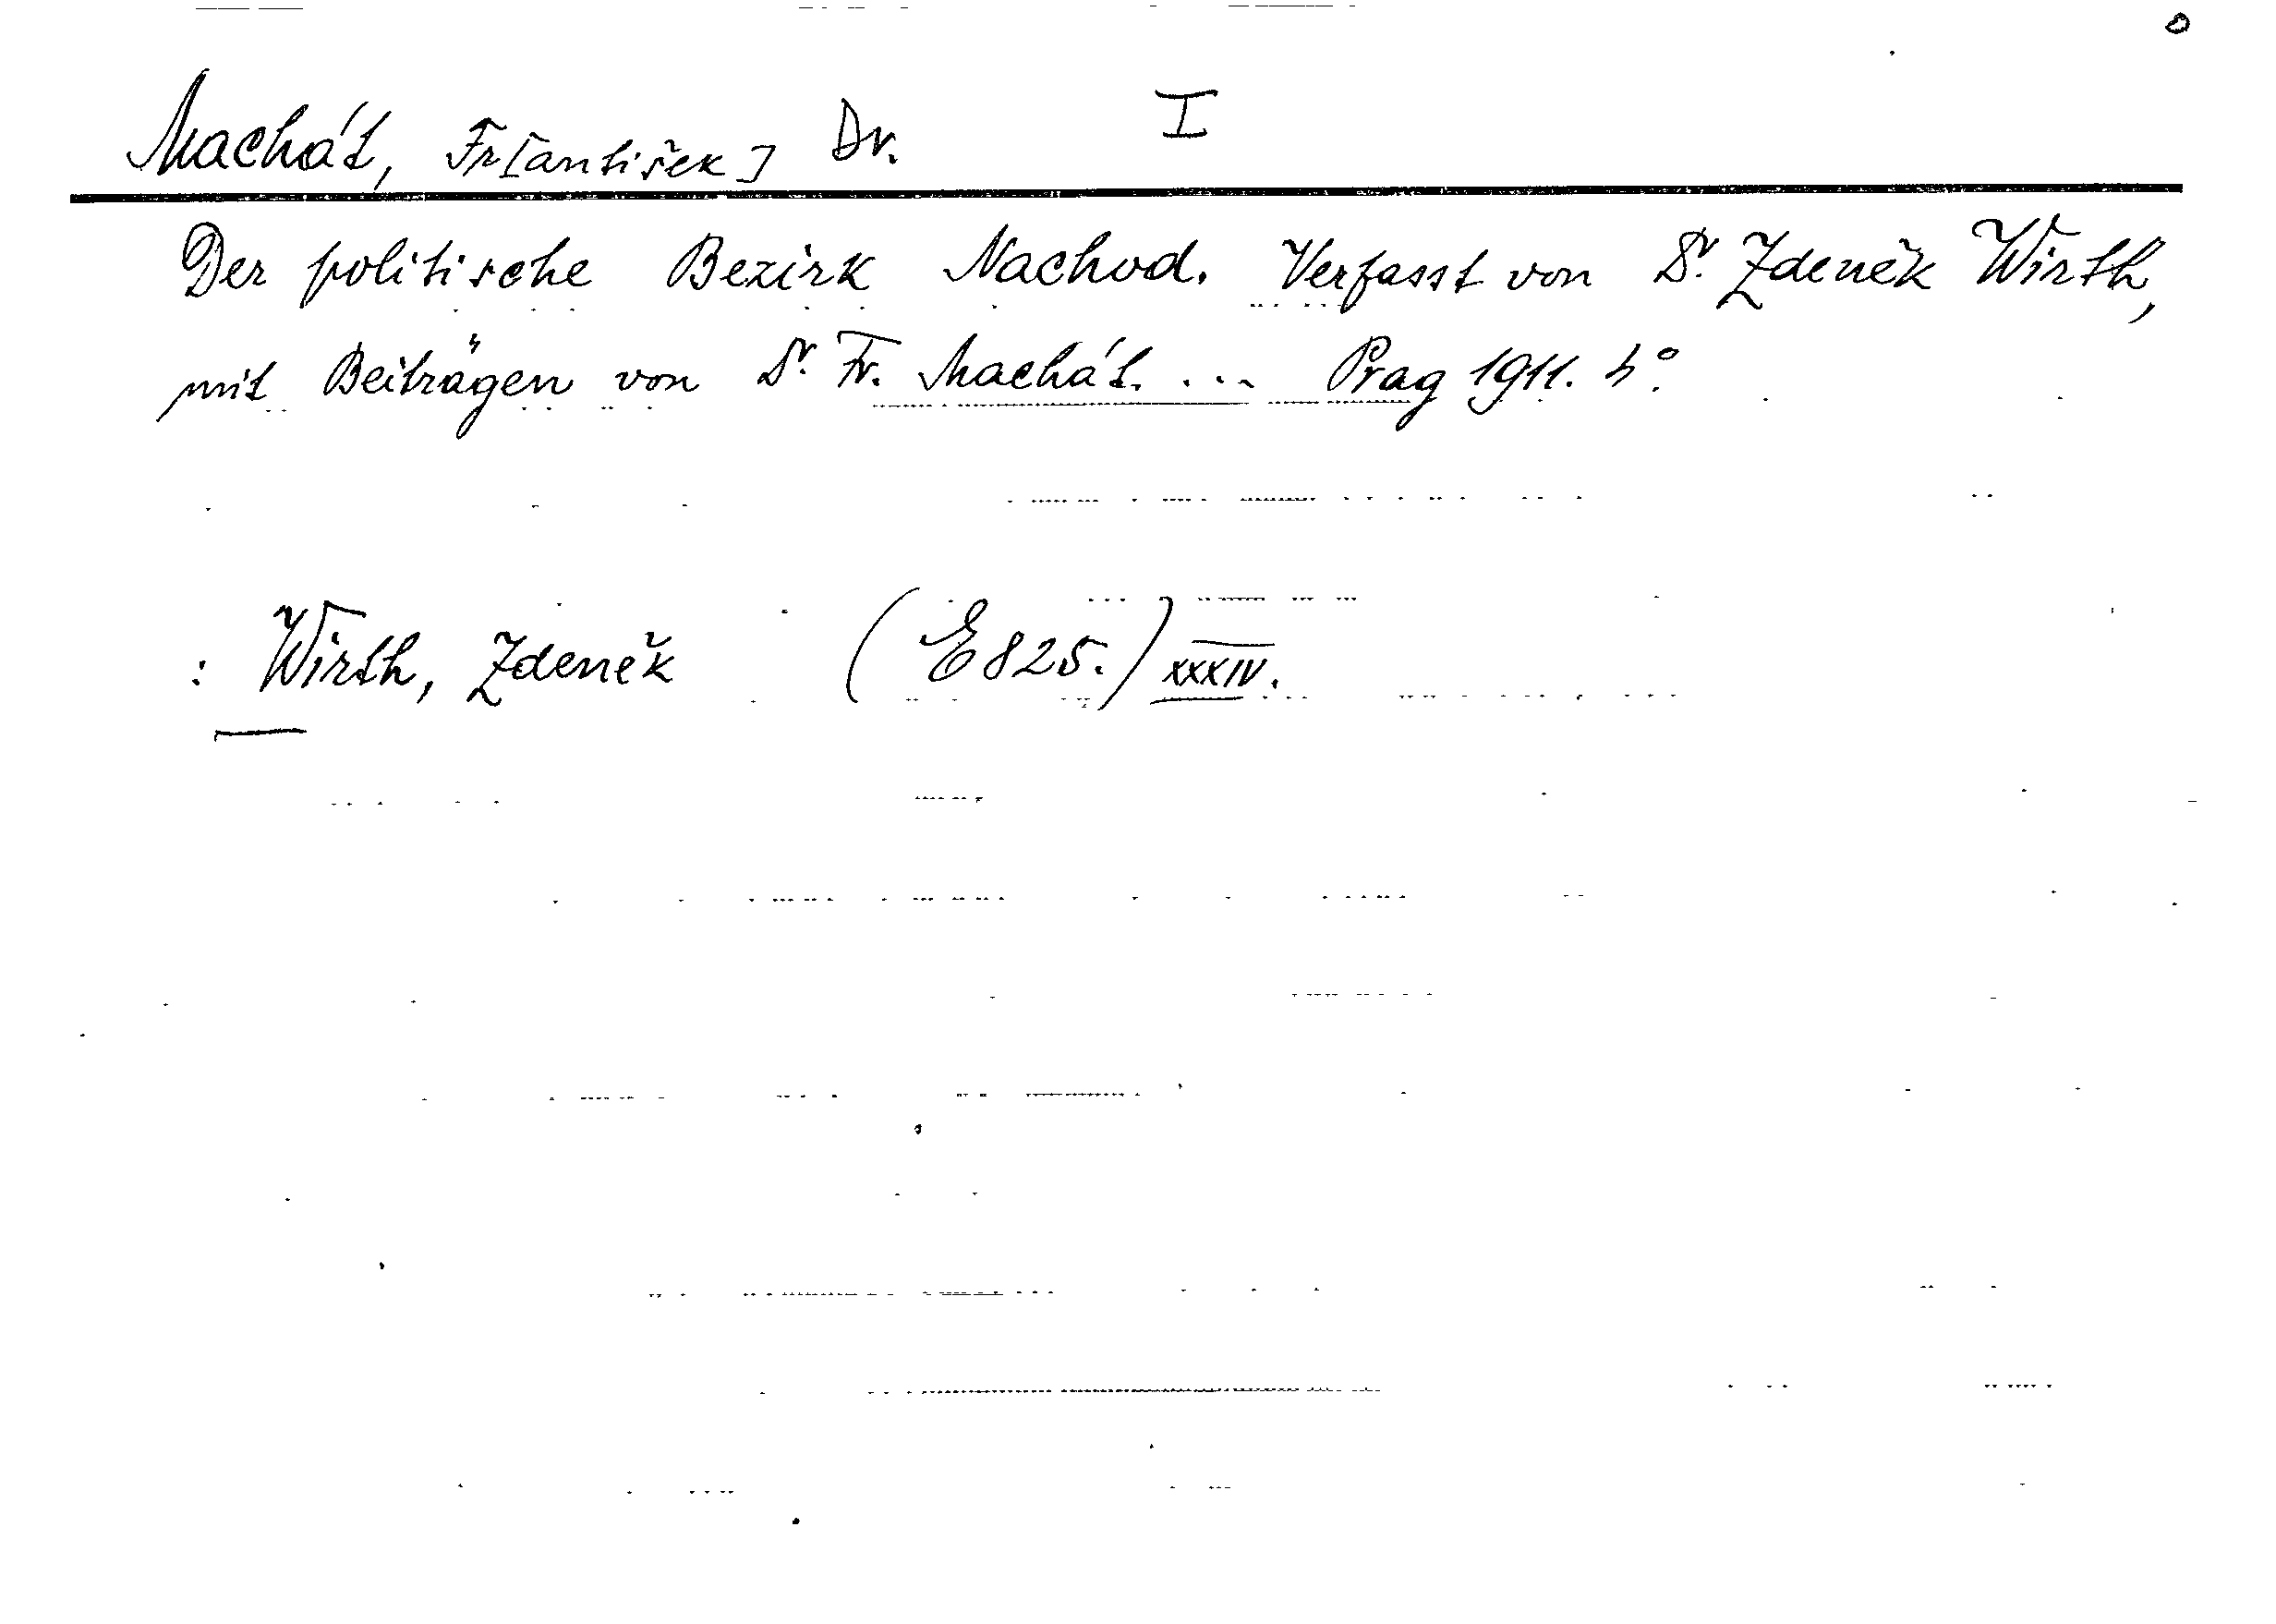 Machát, Fr[antišek] Dr. I
Der politische Bezirk Nachod. Verfasst von Dr. Zdeněk Wirth,
mit Beiträgen von Dr. Fr. Machát. ... Prag 1911. 4°.
: Wirth, Zdeněk (E 825.) XXXIV.